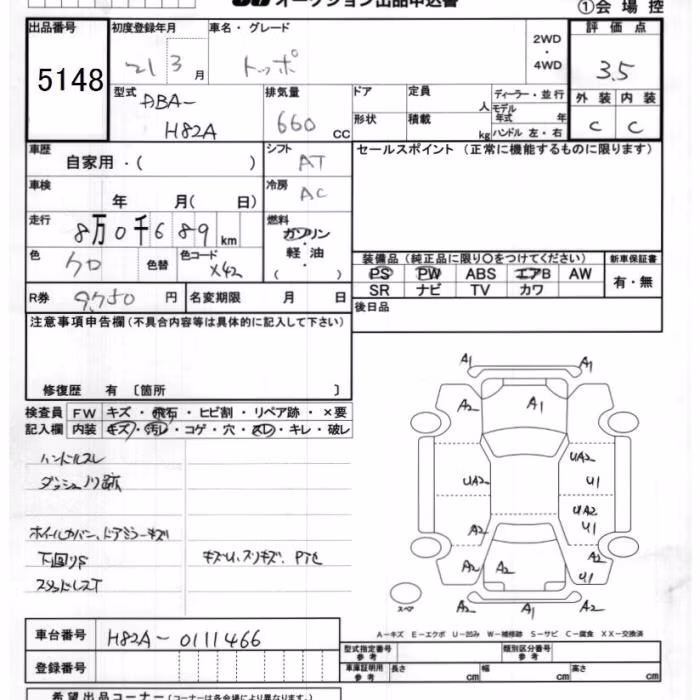 オークション出品申込書
①会場控
出品番号 初度登録年月 車名・グレード 評価点
5148 21 3月 トッポ 2WD・4WD 3.5
型式 DBA-H82A 排気量 660 CC ドア 定員 人 ディーラー・並行 外装 内装
形状 積載 kg モデル年式 年 ハンドル 左・右 C C
車歴 自家用・( ) シフト AT セールスポイント (正常に機能するものに限ります)
車検 年 月( 日) 冷房 AC
走行 8万0千689km 燃料 ガソリン・軽油・( )
色 クロ 色替 色コード X42 装備品(純正品に限り○をつけてください) 新車保証書
PS PW ABS エアB AW 有・無
SR ナビ TV カワ
R券 9,750円 名変期限 月 日 後日品
注意事項申告欄(不具合内容等は具体的に記入して下さい)
修復歴 有 〔箇所 〕
検査員 FW キズ・飛石・ヒビ割・リペア跡・×要
記入欄 内装 キズ・汚レ・コゲ・穴・スレ・キレ・破レ
ハンドルスレ
ダッシュノリ跡
ホイールカバー、ドアミラーキズ
下回りS キズU、スリキズ、PTC
スタッドレスT
A1 A1
A2 A1 A2
UA2
UA2 U1
UA2
U1
A2 A2
A2 A2 U1
A2 A2
スペア
A-キズ E-エクボ U-凹み W-補修跡 S-サビ C-腐食 XX-交換済
車台番号 H82A-0111466
型式指定番号 参考 類別区分番号 参考
登録番号 車庫証明用 参考 長さ cm 幅 cm 高さ cm
希望出品コーナー(コーナーは各会場により異なります。)